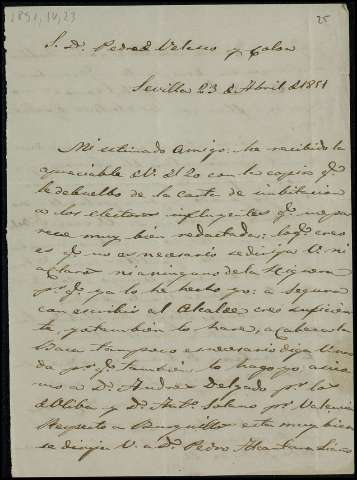 1851, IV, 23
25
S. Dn. Pedro de Velasco y Colon
Sevilla 23 de Abril de 1851
Mi estimado Amigo: he recibido la
apreciable de V. del 20 con la copia qe.
le debuelbo de la carta de imbitacion
a los electores influyentes qe. me pa
rece muy bien redactada: lo qe. creo
es qe. no es necesario se dirija V. ni
a Claro ni a ninguno de la Higuera
pr. qe. ya lo he hecho yo: a Segura
con escribir al Alcalde creo suficien
te, y tambien lo hare, a Cabeza la
Baca tampoco es necesario diga V. na
da pr. qe. tambien lo hago yo, asi co
mo a Dn. Andres Delgado pr. los
de Oliba y Dn. Anto. Solano pr. Valencia
Respecto a Burguillos esta muy bien
se dirija V. a Dn. Pedro Alcantara